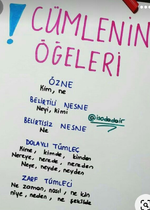 ! CÜMLENİN
ÖĞELERİ
ÖZNE
Kim, ne
BELİRTİLİ NESNE
Neyi, kimi
BELİRTİSİZ NESNE
Ne
DOLAYLI TÜMLEÇ
Kime, kimde, kimden
Nereye, nerede, nereden
Neye, neyde, neyden
ZARF TÜMLECİ
Ne zaman, nasıl, ne için
niye, neden, ne şekilde